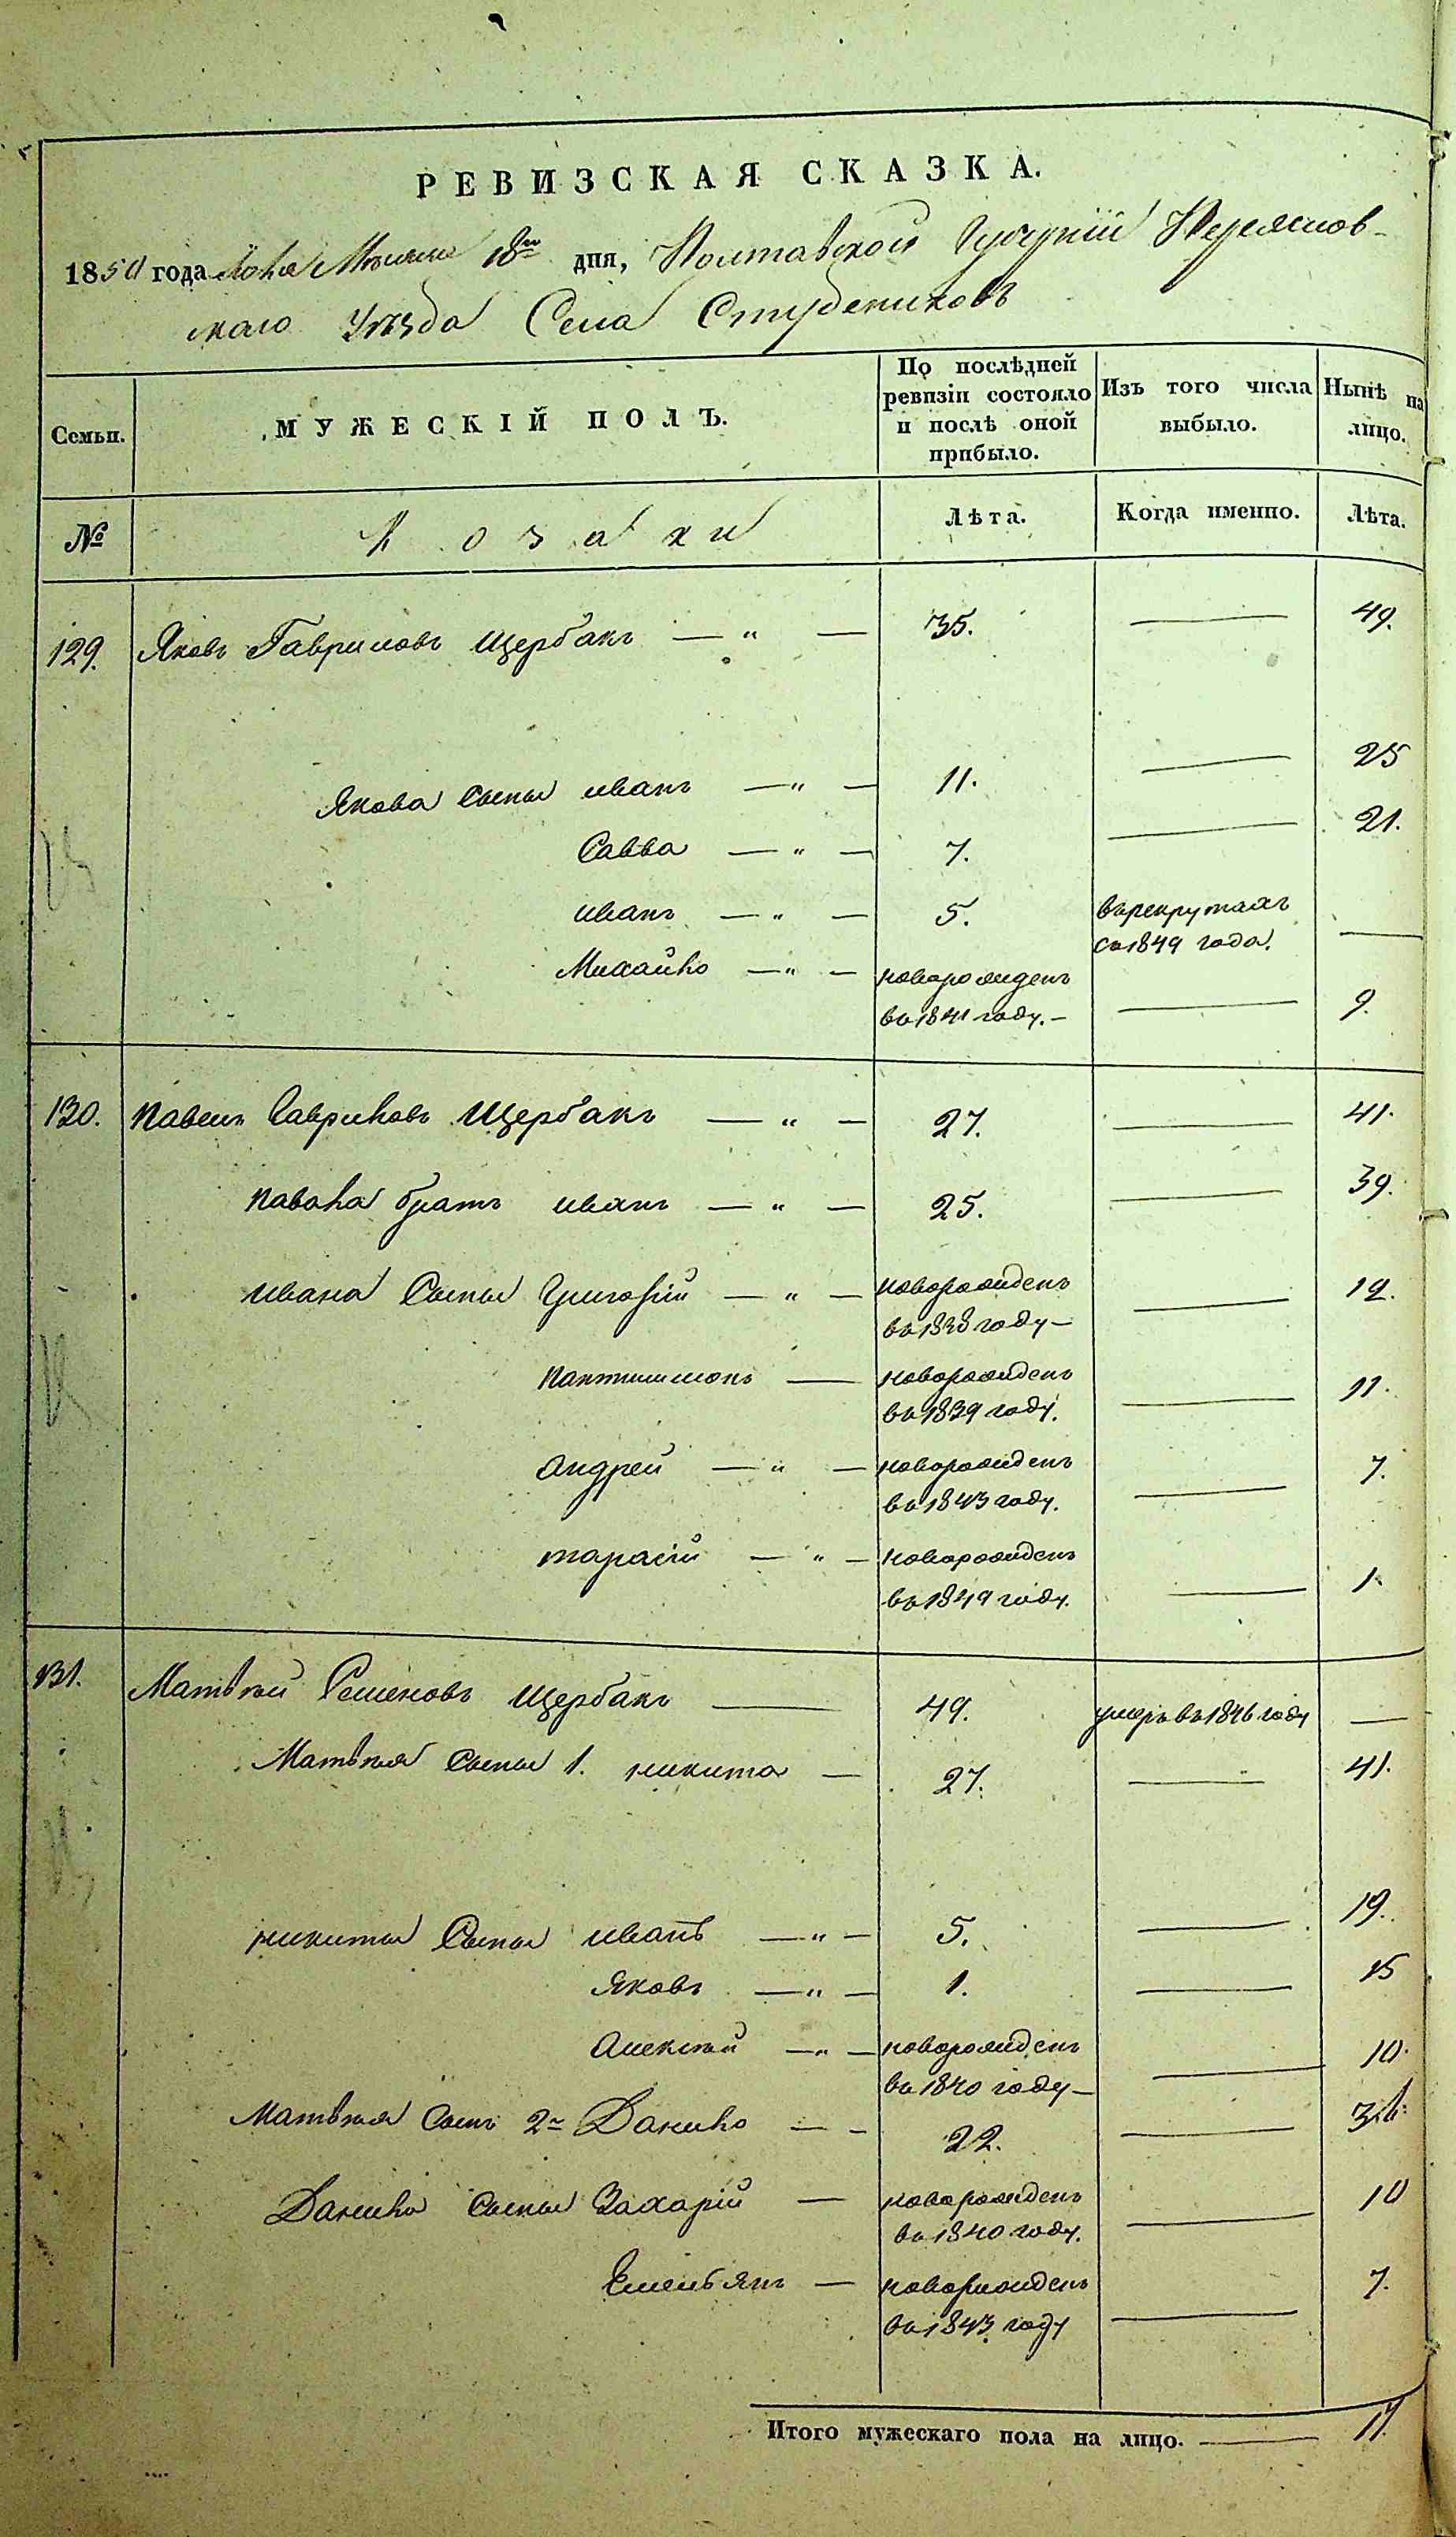 РЕВИЗСКАЯ СКАЗКА.
1850 года Іюня Мѣсяца 18го дня, Полтавской Губерніи Переяслов-
скаго Уѣзда Села Студениковъ
Семьи.
МУЖЕСКІЙ ПОЛЪ.
По послѣдней
ревизіи состояло
и послѣ оной
прибыло.
Изъ того числа
выбыло.
Нынѣ на
лицо.
№
Козаки
Лѣта.
Когда именно.
Лѣта.
129. Яковъ Гавриловъ Щербакъ — „ — 35. — 49.
Якова Сыны иванъ — „ — 11. — 25
Савва — „ — 7. — 21.
иванъ — „ — 5. въ рекрутахъ
съ 1849 года. —
Михайло — „ — новорожденъ
въ 1841 году. — — 9.
130. Павелъ Гавриловъ Щербакъ — „ — 27. — 41.
Павола братъ иванъ — „ — 25. — 39.
ивана Сыны Григорій — „ — новорожденъ — 12.
въ 1838 году —
Пантилимонъ — новорожденъ — 11.
въ 1839 году.
андрей — „ — новорожденъ — 7.
въ 1843 году.
тарасій — „ — новорожденъ — 1.
въ 1849 году.
131. Матвѣй Семеновъ Щербакъ — 49. умеръ въ 1846 году —
Матвѣя Сыны 1. никита — 27. — 41.
никиты Сыны иванъ — „ — 5. — 19.
Яковъ — „ — 1. — 15
Алексѣй — „ — новорожденъ — 10.
въ 1840 году —
Матвѣя Сынъ 2й Данило — — 22. — 36.
Данила Сыны Захарій — новорожденъ — 10
въ 1840 году.
Емельянъ — новорожденъ — 7.
въ 1843 году
Итого мужескаго пола на лицо. — 17.